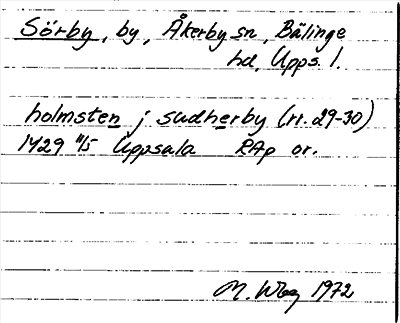 Sörby, by, Åkerby sn, Bälinge
hd, Upps. l.
holmsten j sudherby (r. 29-30)
1429 11/5 Uppsala RAp or.
M. Wbg 1972